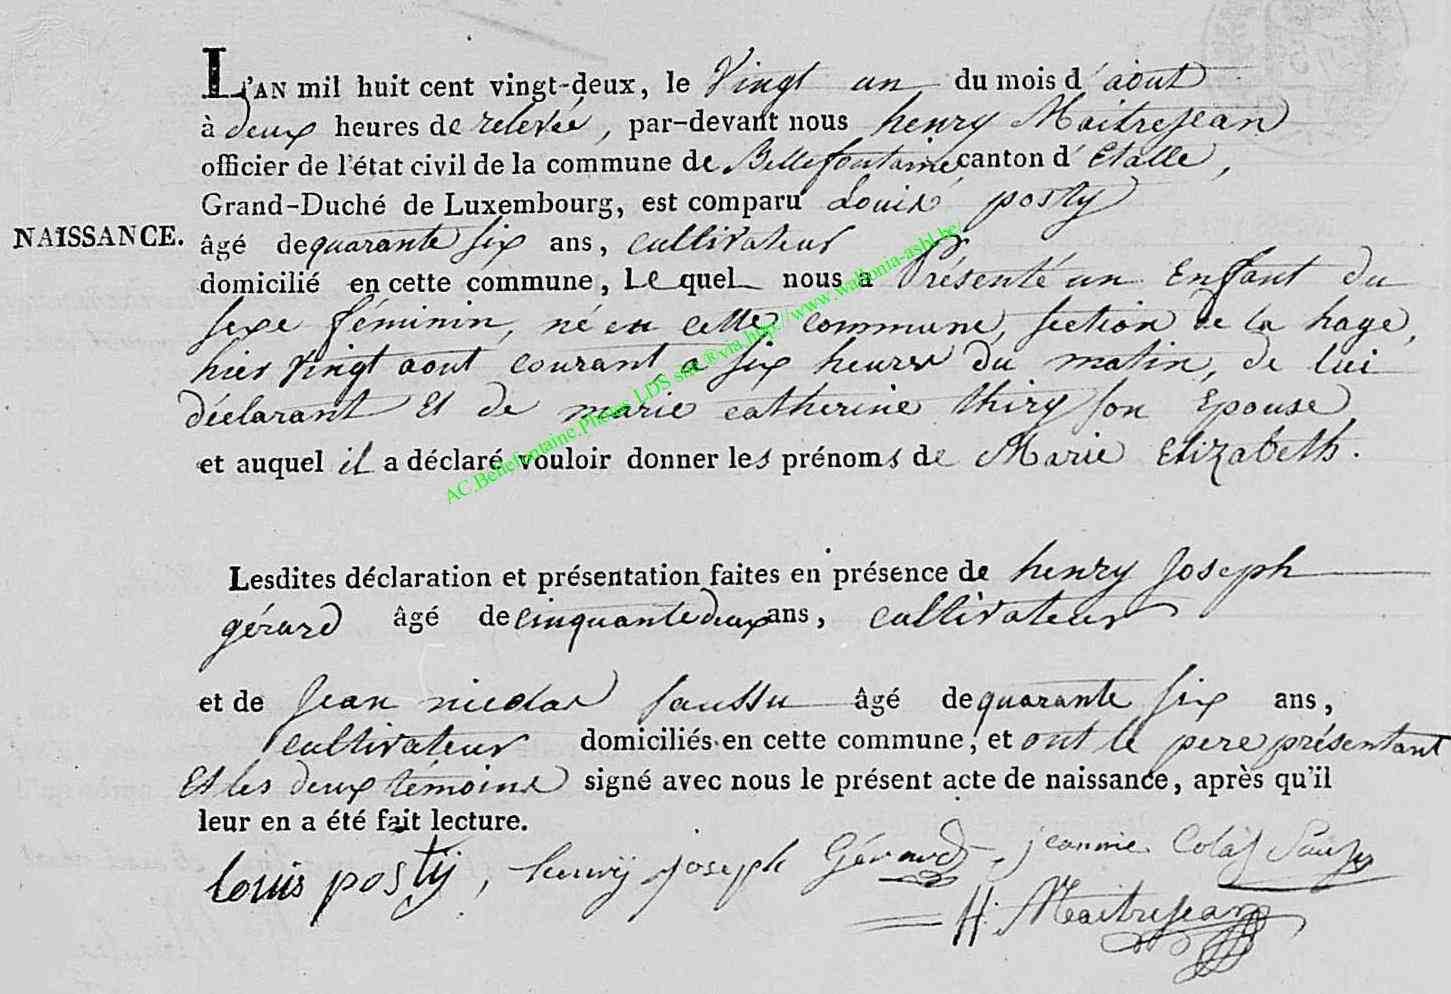 L'AN mil huit cent vingt-deux, le Vingt un du mois d'aout
à deux heures de relevée, par-devant nous henry Maitrejean
officier de l'état civil de la commune de Bellefontaine canton d'Etalle,
Grand-Duché de Luxembourg, est comparu Louis posty
NAISSANCE. âgé de quarante six ans, cultivateur
domicilié en cette commune, Le quel nous a Présenté un Enfant du
sexe féminin, né en cette commune, section de la hage,
hier vingt aout courant, a six heures du matin, de lui
déclarant Et de marie catherine thiry son Epouse
et auquel il a déclaré vouloir donner les prénoms de Marie Elizabeth.
AC.Bellefontaine.Photos LDS site ®via.http://www.wallonia-asbl.be/
Lesdites déclaration et présentation faites en présence de henry Joseph
gérard âgé de cinquante deux ans, cultivateur
et de Jean nicolas saussu âgé de quarante six ans,
cultivateur domiciliés en cette commune, et ont le pere présentant
Et les deux témoins signé avec nous le présent acte de naissance, après qu'il
leur en a été fait lecture.
louis posty, henry joseph Gérard, jeanni Colas
H. Maitrejean